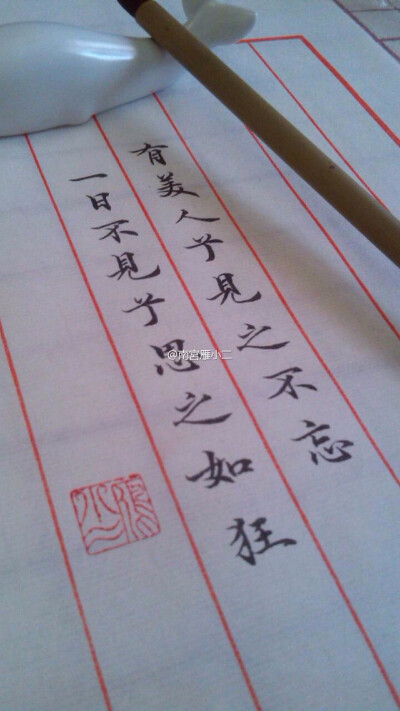 有美人兮見之不忘
一日不見兮思之如狂
@南宫雁小二